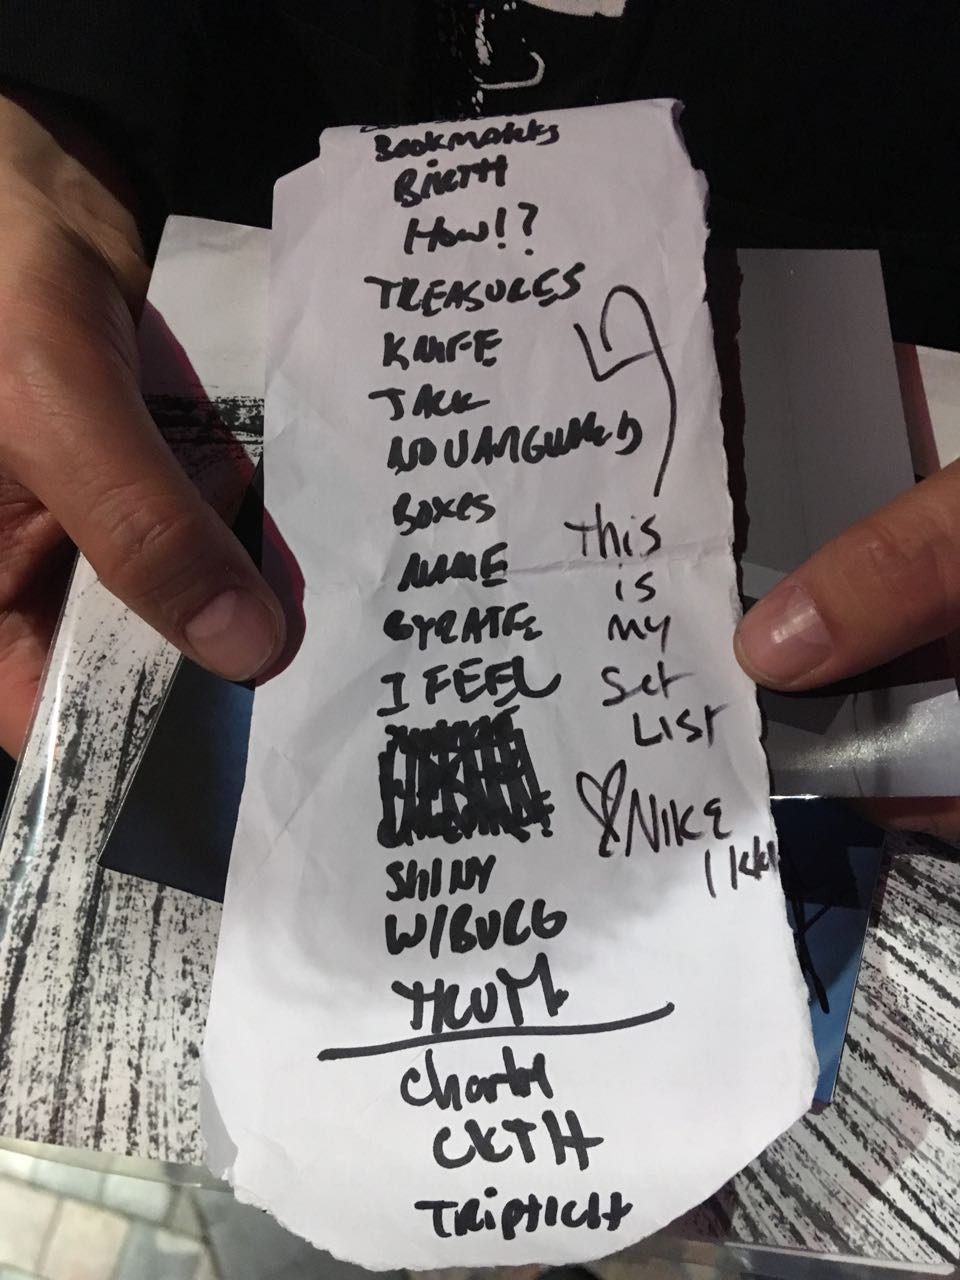 Bookmarks
BIRTH
How!?
TREASURES
KNIFE
JACK
NOVANGUARD
BOXES
NAME
GYRATE
I FEEL
SHINY
W/BURG
TRUTH
Charity
CKTH
TRIPTICH
This
is
my
Set
LIST
NIKE